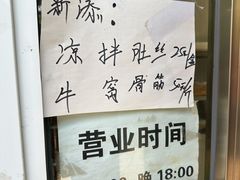 新添：
凉拌肚丝25/盒
牛窝骨筋50/斤
营业时间
晚18:00